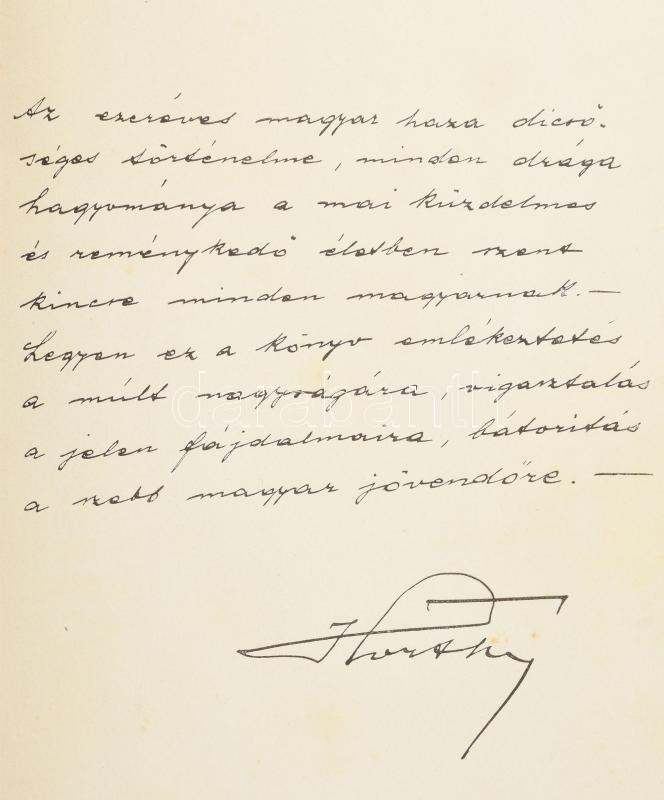 Az ezeréves magyar haza dicső-
séges történelme, minden drága
hagyománya a mai küzdelmes
és reménykedő életben szent
kincse minden magyarnak. —
Legyen ez a könyv emlékeztetés
a múlt nagyságára, vigasztalás
a jelen fájdalmaira, bátoritás
a szebb magyar jövendőre. —
Horthy
darabanth